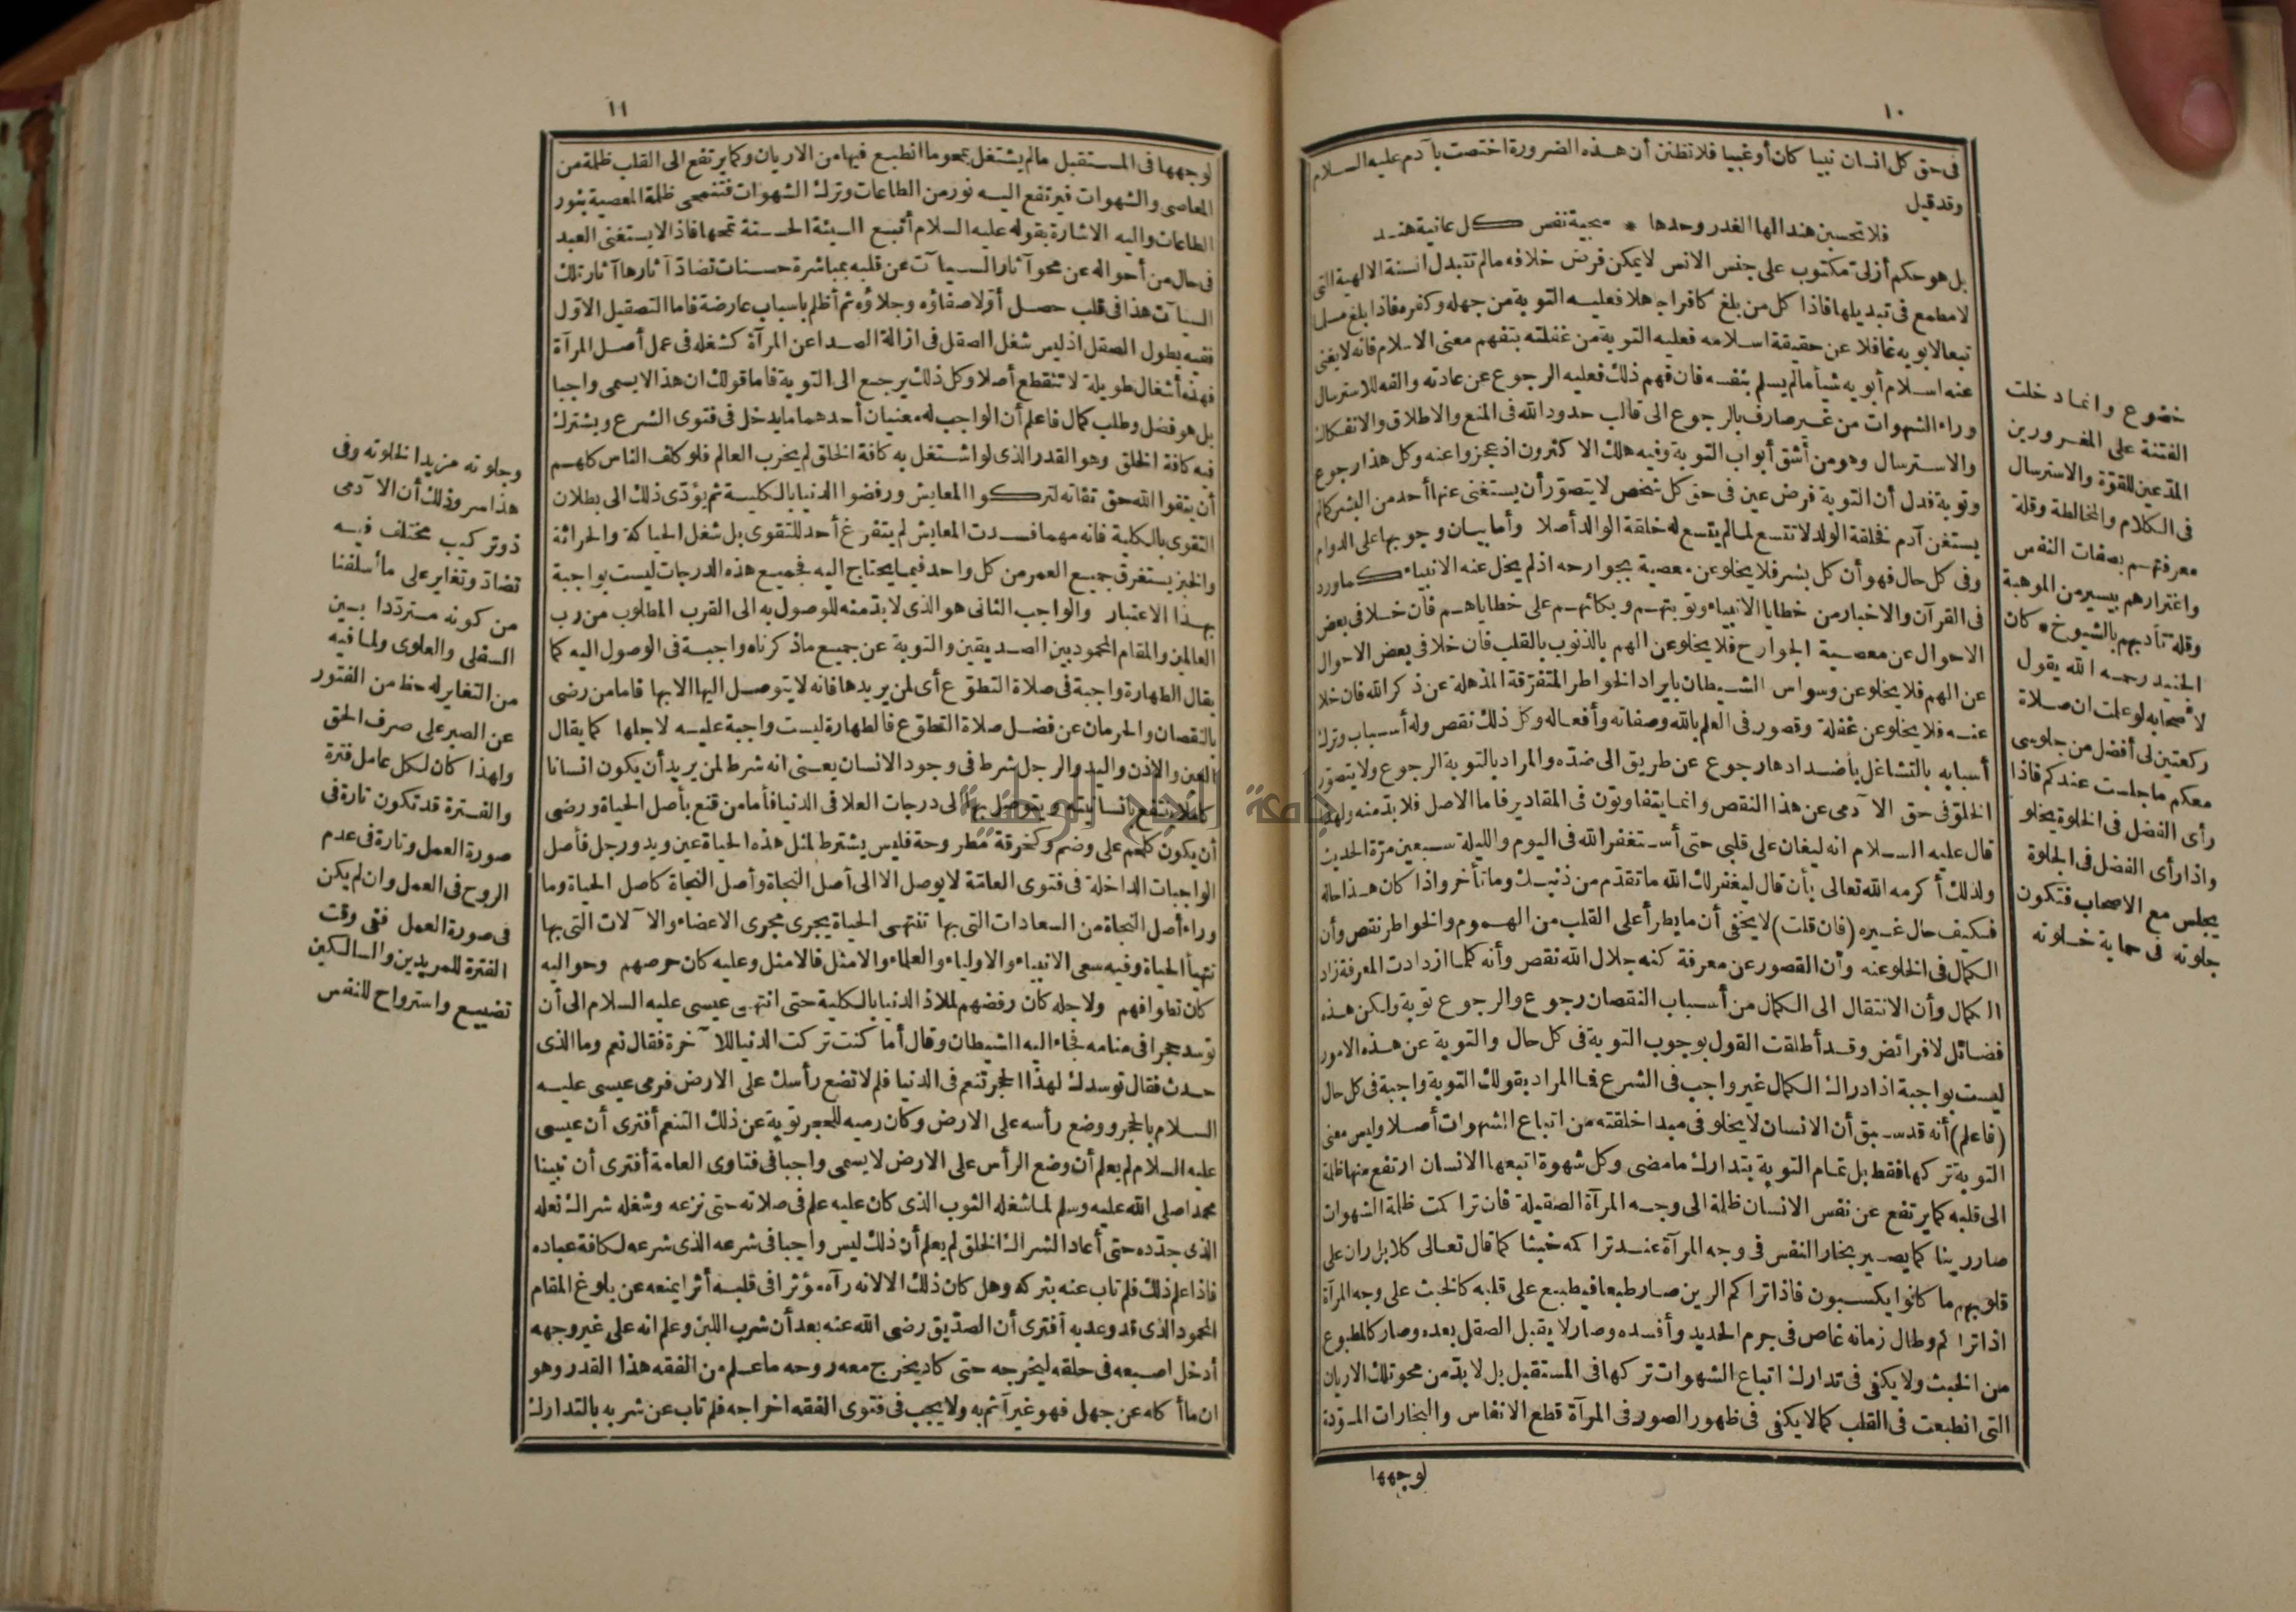 ١٠
فى حق كل انسان نبيا كان أو غبيا فلا تظنن أن هذه الضرورة اختصت بآدم عليه السلام
وقد قيل
فلا تحسبن هندا لها الغدر وحدها * سجية نفس كل غانية هند
بل هو حكم أزلى مكتوب على جنس الانس لا يمكن فرض خلافه مالم تتبدل السنة الالهية التى
لا مطمع فى تبديلها فاذا كل من بلغ كافرا جاهلا فعليه التوبة من جهله وكفره فاذا بلغ مسلما
تبعا لابويه غافلا عن حقيقة اسلامه فعليه التوبة من غفلته بتفهم معنى الاسلام فانه لا يغنى
عنه اسلام أبويه شيأ مالم يسلم بنفسه فان فهم ذلك فعليه الرجوع عن عادته والفه للاسترسال
وراء الشهوات من غير صارف بالرجوع الى قالب حدود الله فى المنع والاطلاق والانفكاك
والاسترسال وهو من أشق أبواب التوبة وفيه هلك الاكثرون اذ عجزوا عنه وكل هذا رجوع
وتوبة فدل أن التوبة فرض عين فى حق كل شخص لا يتصوّر أن يستغنى عنها أحد من البشر كالم
يستغن آدم فخلقة الولد لا تتسع لما لم يتسع له خلقة الوالد أصلا وأما بيان وجوبها على الدوام
وفى كل حال فهو أن كل بشر فلا يخلو عن معصية بجوارحه اذ لم يخل عنه الانبياء كما ورد
فى القرآن والاخبار من خطايا الانبياء وتوبتهم وبكائهم على خطاياهم فان خلا فى بعض
الاحوال عن معصية الجوارح فلا يخلو عن الهم بالذنوب بالقلب فان خلا فى بعض الاحوال
عن الهم فلا يخلو عن وسواس الشيطان بايراد الخواطر المتفرّقة المذهلة عن ذكر الله فان خلا
عنه فلا يخلو عن غفلة وقصور فى العلم بالله وصفاته وأفعاله وكل ذلك نقص وله أسباب وترك
أسبابه بالتشاغل بأضدادها رجوع عن طريق الى ضدّه والمراد بالتوبة الرجوع ولا يتصوّر
الخلوّ فى حق الآدمى عن هذا النقص وانما يتفاوتون فى المقادير فاما الاصل فلا بدّ منه ولهذا
قال عليه السلام انه ليغان على قلبى حتى أستغفر الله فى اليوم والليلة سبعين مرّة الحديث
ولذلك أكرمه الله تعالى بأن قال ليغفر لك الله ما تقدّم من ذنبك وما تأخر واذا كان هذا حاله
فكيف حال غيره (فان قلت) لا يخفى أن ما يطرأ على القلب من الهموم والخواطر نقص وأن
الكمال فى الخلو عنه وأن القصور عن معرفة كنه جلال الله نقص وأنه كلما ازدادت المعرفة زاد
الكمال وأن الانتقال الى الكمال من أسباب النقصان رجوع والرجوع توبة ولكن هذه
فضائل لا فرائض وقد أطلقت القول بوجوب التوبة فى كل حال والتوبة عن هذه الامور
ليست بواجبة اذ ادراك الكمال غير واجب فى الشرع فما المراد بقولك التوبة واجبة فى كل حال
(فاعلم) أنه قد سبق أن الانسان لا يخلو فى مبدا خلقته من اتباع الشهوات أصلا وليس معنى
التوبة تركها فقط بل تمام التوبة بتدارك ما مضى وكل شهوة اتبعها الانسان ارتفع منها ظلمة
الى قلبه كما يرتفع عن نفس الانسان ظلمة الى وجه المرآة الصقيلة فان تراكمت ظلمة الشهوات
صار رينا كما يصير بخار النفس فى وجه المرآة عند تراكمه خبثا كما قال تعالى كلا بل ران على
قلوبهم ما كانوا يكسبون فاذا تراكم الرين صار طبعا فيطبع على قلبه كالخبث على وجه المرآة
اذا تراكم وطال زمانه غاص فى جرم الحديد وأفسده وصار لا يقبل الصقل بعده وصار كالمطبوع
من الخبث ولا يكفى فى تدارك اتباع الشهوات تركها فى المستقبل بل لا بدّ من محو تلك الاريان
التى انطبعت فى القلب كما لا يكفى فى ظهور الصور فى المرآة قطع الانفاس والبخارات المسوّدة
لوجهها
خضوع وانما دخلت
الفتنة على المغرورين
المدّعين للقوّة والاسترسال
فى الكلام والمخالطة وقلة
معرفتهم بصفات النفس
واغترارهم بيسير من الموهبة
وقلة تأدبهم بالشيوخ * كان
الجنيد رحمه الله يقول
لاصحابه لو علمت ان صلاة
ركعتين لى أفضل من جلوسى
معكم ما جلست عندكم فاذا
رأى الفضل فى الخلوة يخلو
واذا رأى الفضل فى الجلوة
يجلس مع الاصحاب فتكون
جلوته فى حماية خلوته
١١
لوجهها فى المستقبل مالم يشتغل بمحو ما انطبع فيها من الاريان وكما يرتفع الى القلب ظلمة من
المعاصى والشهوات فيرتفع اليه نور من الطاعات وترك الشهوات فتنمحى ظلمة المعصية بنور
الطاعات واليه الاشارة بقوله عليه السلام أتبع السيئة الحسنة تمحها فاذا لا يستغنى العبد
فى حال من أحواله عن محو آثار السيآت عن قلبه بمباشرة حسنات تضادّ آثارها آثار تلك
السيآت هذا فى قلب حصل أوّلا صفاؤه وجلاؤه ثم أظلم باسباب عارضة فاما التصقيل الاوّل
ففيه يطول الصقل اذ ليس شغل الصقل فى ازالة الصدا عن المرآة كشغله فى عمل أصل المرآة
فهذه أشغال طويلة لا تنقطع أصلا وكل ذلك يرجع الى التوبة فاما قولك ان هذا لا يسمى واجبا
بل هو فضل وطلب كمال فاعلم أن الواجب له معنيان أحدهما ما يدخل فى فتوى الشرع ويشترك
فيه كافة الخلق وهو القدر الذى لو اشتغل به كافة الخلق لم يخرب العالم فلو كلف الناس كلهم
أن يتقوا الله حق تقاته لتركوا المعايش ورفضوا الدنيا بالكلية ثم يؤدّى ذلك الى بطلان
التقوى بالكلية فانه مهما فسدت المعايش لم يتفرغ أحد للتقوى بل شغل الحياكة والحراثة
والخبز يستغرق جميع العمر من كل واحد فيما يحتاج اليه فجميع هذه الدرجات ليست بواجبة
بهذا الاعتبار والواجب الثانى هو الذى لا بدّ منه للوصول به الى القرب المطلوب من رب
العالمين والمقام المحمود بين الصديقين والتوبة عن جميع ماذكرناه واجبة فى الوصول اليه كما
يقال الطهارة واجبة فى صلاة التطوّع أى لمن يريدها فانه لا يتوصل اليها الا بها فاما من رضى
بالنقصان والحرمان عن فضل صلاة التطوّع فالطهارة ليست واجبة عليه لاجلها كما يقال
العين والاذن واليد والرجل شرط فى وجود الانسان يعنى انه شرط لمن يريد أن يكون انسانا
كاملا ينتفع بانسانيته ويتوصل بها الى درجات العلا فى الدنيا فأما من قنع بأصل الحياة ورضى
أن يكون كلحم على وضم وكخرقة مطروحة فليس يشترط لمثل هذه الحياة عين ويد ورجل فأصل
الواجبات الداخلة فى فتوى العامّة لا يوصل الا الى أصل النجاة وأصل النجاة كاصل الحياة وما
وراء أصل النجاة من السعادات التى بها تنتهى الحياة يجرى مجرى الاعضاء والآلات التى بها
تتهيأ الحياة وفيه سعى الانبياء والاولياء والعلماء والامثل فالامثل وعليه كان حرصهم وحواليه
كان تطوافهم ولاجله كان رفضهم لملاذ الدنيا بالكلية حتى انتهى عيسى عليه السلام الى أن
توسد حجرا فى منامه فجاء اليه الشيطان وقال أما كنت تركت الدنيا للآخرة فقال نعم وما الذى
حدث فقال توسدك لهذا الحجر تنعم فى الدنيا فلم لا تضع رأسك على الارض فرمى عيسى عليه
السلام بالحجر ووضع رأسه على الارض وكان رميه للحجر توبة عن ذلك التنعم أفترى أن عيسى
عليه السلام لم يعلم أن وضع الرأس على الارض لا يسمى واجبا فى فتاوى العامة أفترى أن نبينا
محمدا صلى الله عليه وسلم لما شغله الثوب الذى كان عليه علم فى صلاته حتى نزعه وشغله شراك نعله
الذى جدّده حتى أعاد الشراك الخلق لم يعلم أن ذلك ليس واجبا فى شرعه الذى شرعه لكافة عباده
فاذا علم ذلك فلم تاب عنه بتركه وهل كان ذلك الا لانه رآه مؤثرا فى قلبه أثرا يمنعه عن بلوغ المقام
المحمود الذى قد وعد به أفترى أن الصدّيق رضى الله عنه بعد أن شرب اللبن وعلم انه على غير وجهه
أدخل اصبعه فى حلقه ليخرجه حتى كاد يخرج معه روحه ما علم من الفقه هذا القدر وهو
ان ما أكله عن جهل فهو غير آثم به ولا يجب فى فتوى الفقه اخراجه فلم تاب عن شربه بالتدارك
وجلوته مزيدا لخلوته وفى
هذا سر وذلك أن الآدمى
ذو تركيب مختلف فيه
تضادّ وتغاير على ما أسلفنا
من كونه متردّدا بين
السفلى والعلوى ولما فيه
من التغاير له حظ من الفتور
عن الصبر على صرف الحق
ولهذا كان لكل عامل فترة
والفترة قد تكون تارة فى
صورة العمل وتارة فى عدم
الروح فى العمل وان لم يكن
فى صورة العمل ففى وقت
الفترة للمريدين والسالكين
تضييع واسترواح للنفس
جامعة النجاح الوطنية